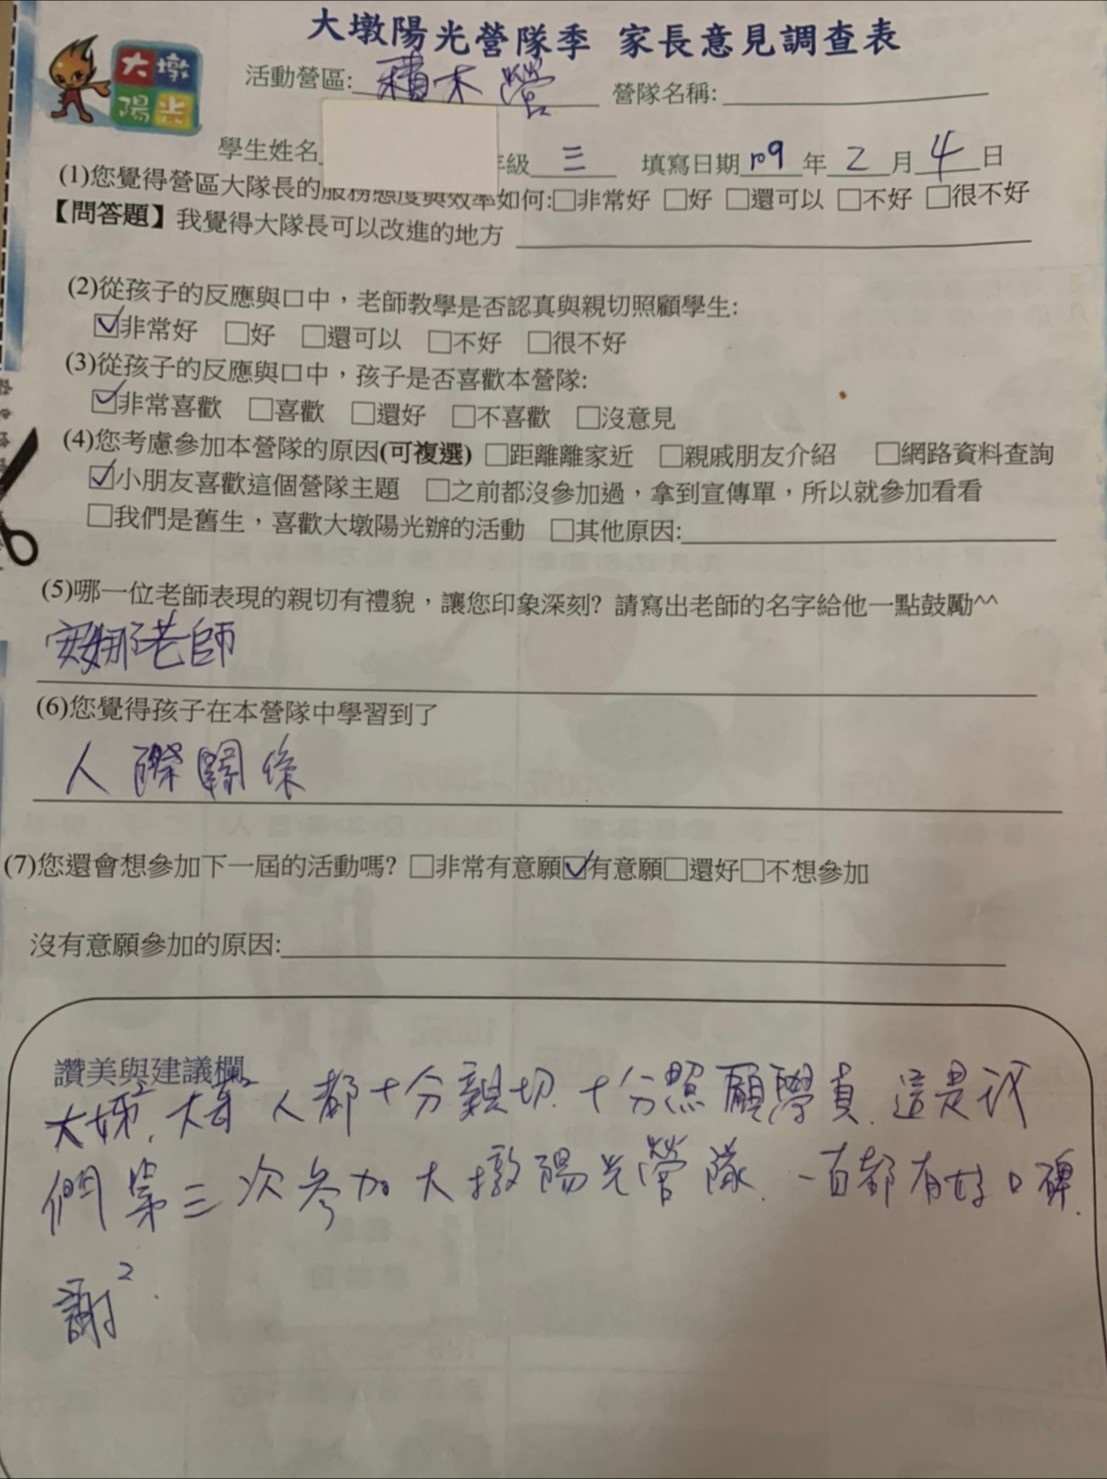 大墩陽光營隊季 家長意見調查表
大墩
陽光
活動營區:積木營 營隊名稱:
學生姓名 年級三 填寫日期109年2月4日
(1)您覺得營區大隊長的服務態度與效率如何:□非常好 □好 □還可以 □不好 □很不好
【問答題】我覺得大隊長可以改進的地方
(2)從孩子的反應與口中，老師教學是否認真與親切照顧學生:
☑非常好 □好 □還可以 □不好 □很不好
(3)從孩子的反應與口中，孩子是否喜歡本營隊:
☑非常喜歡 □喜歡 □還好 □不喜歡 □沒意見
(4)您考慮參加本營隊的原因(可複選) □距離離家近 □親戚朋友介紹 □網路資料查詢
☑小朋友喜歡這個營隊主題 □之前都沒參加過，拿到宣傳單，所以就參加看看
□我們是舊生，喜歡大墩陽光辦的活動 □其他原因:
(5)哪一位老師表現的親切有禮貌，讓您印象深刻? 請寫出老師的名字給他一點鼓勵^^
安娜老師
(6)您覺得孩子在本營隊中學習到了
人際關係
(7)您還會想參加下一屆的活動嗎? □非常有意願☑有意願□還好□不想參加
沒有意願參加的原因:
讚美與建議欄
大姊²、大哥² 人都十分親切.十分照顧學員.這是我
們第三次參加大墩陽光營隊.一直都有好口碑.
謝².